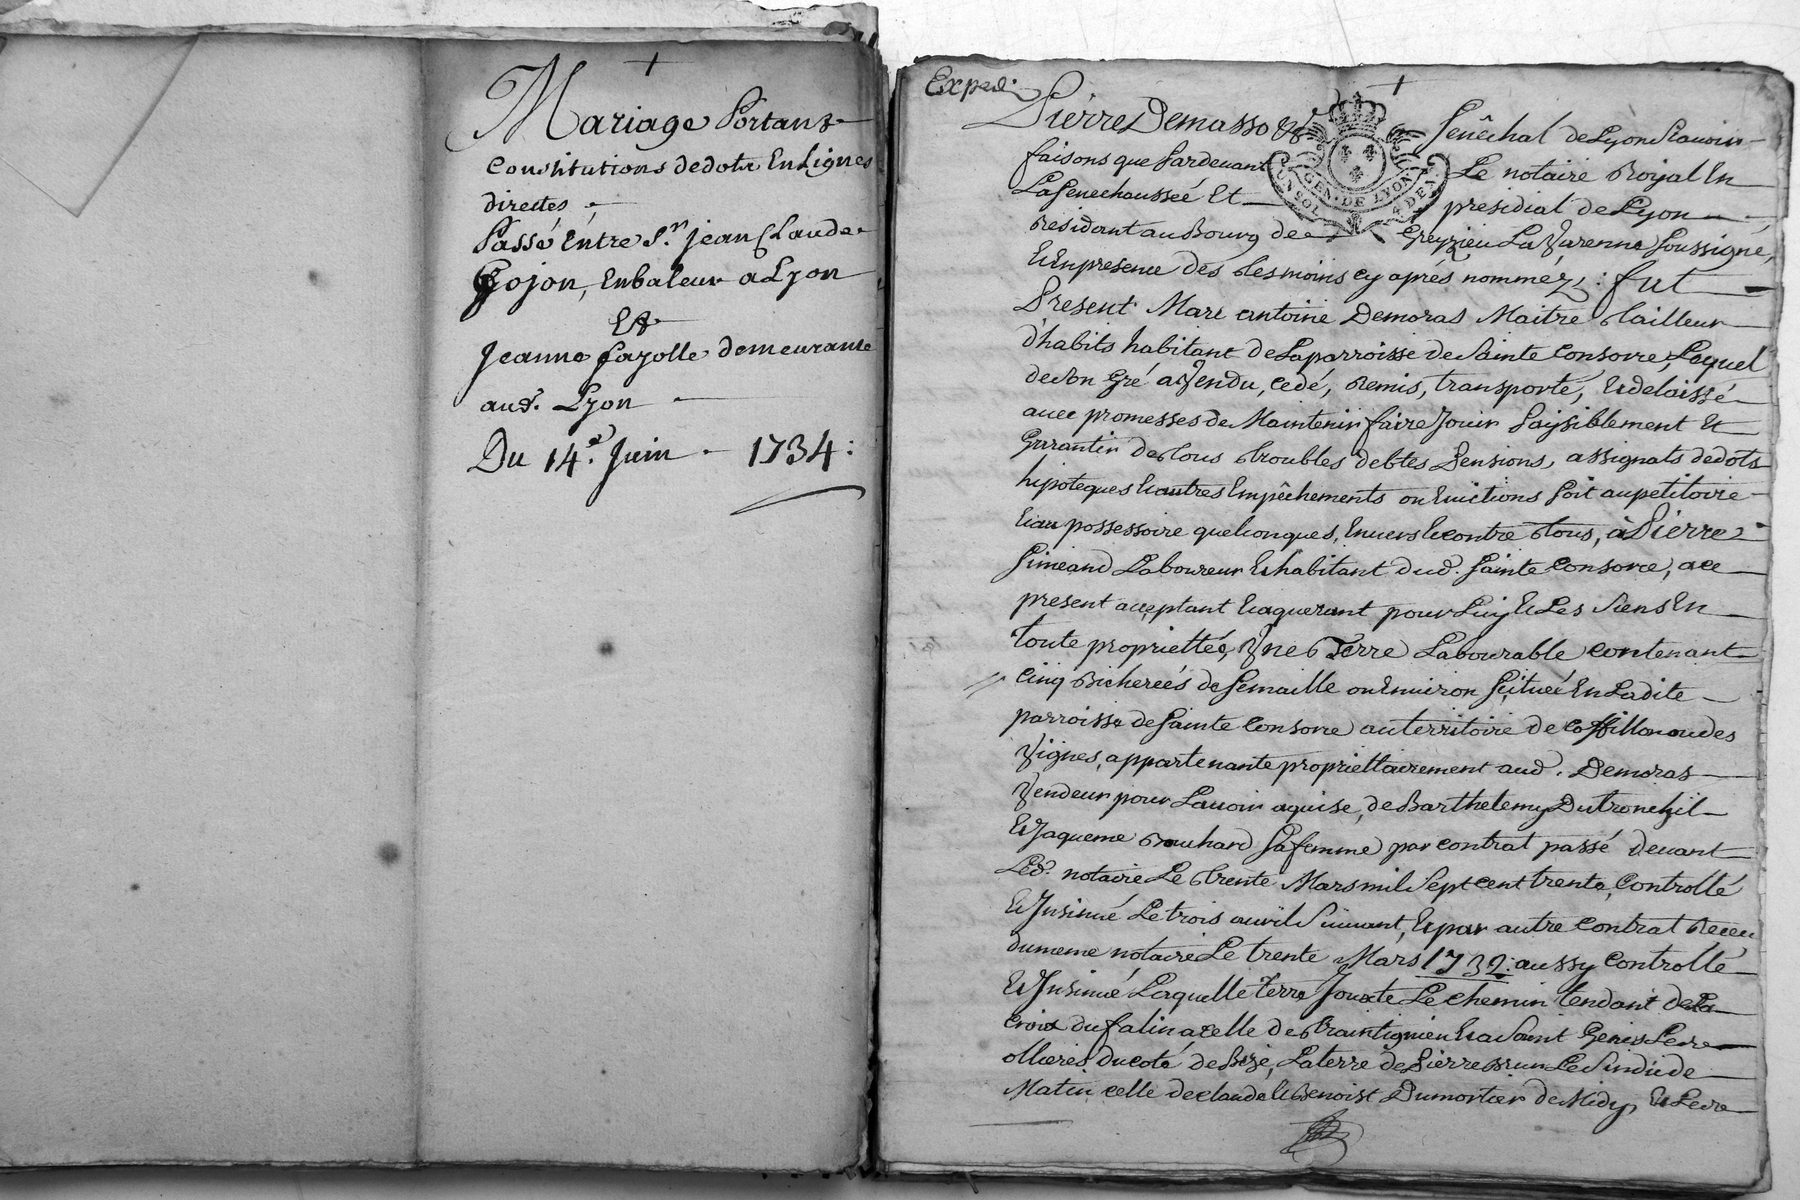 Mariage Portant
Constitutions dedots En Lignes
directes
Passé Entre Sr. jean Claude
Gojon, Enbaleur a Lyon
Et
Jeanne fayolle demeurante
aud. Lyon
Du 14e. Juin - 1734:
Exped.
Pierre Demasso Sénêchal de Lyon Scauoir
faisons que Pardeuant Le notaire Royal En
La Senechausseé Et presidial de Lyon
residant au Bourg de Greyzieu La Varenne Soussigné,
Et En presence des tesmoins cy apres nommez: fut
Present Marc antoine Demoras Maitre tailleur
d'habits habitant de La parroisse de Sainte Consorce, Lequel
de son Gré a Vendu, cedé, remis, transporté, Et delaissé
auec promesses de Maintenir faire Jouir Paisiblement Et
Garrantir de tous troubles debtes Pensions, assignats de dots
hipoteques Et autres Empêchements ou Euictions Soit au petitoire
Et au possessoire quelconques, Enuers Et contre tous, à Pierre
Simeand Laboureur Et habitant dud. Sainte Consorce, a ce
present acceptant Et aquerant pour Luy Et Les Siens En
toute proprietteé, Vne Terre Labourable contenant
Cinq Bichereés de Semaille ou Enuiron Scituéé En Ladite
parroisse de Sainte Consorce au territoire de ou des
Vignes, appartenante propriettairement aud. Demoras
Vendeur pour L'auoir aquise, de Barthelemy Dutronchil
Et Jaqueme Bouchard Sa femme par contrat passé deuant
Led. notaire Le trente Mars mil Sept cent trente, Controllé
Et Insinué Le trois auril Suiuant, Et par autre Contrat Receu
du meme notaire Le trente Mars 1732: aussy Controllé
Et Insinué Laquelle terre Jouxte Le chemin tendant de La
Croix du falin a celle de Et a Saint Genis Les
ollieres du coté de Bize, La terre de Pierre Brun Le Sindic de
Matin celle de claude Et Benoist Dumortier de Midy, Et Le